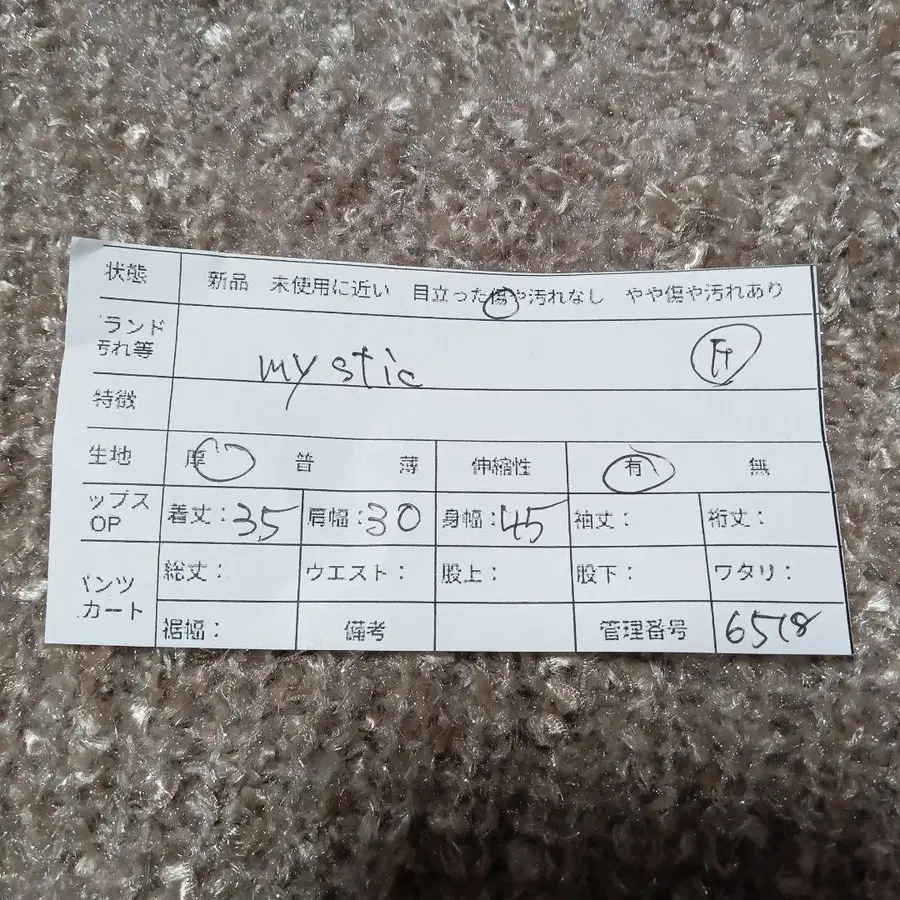 状態 新品 未使用に近い 目立った傷や汚れなし やや傷や汚れあり
ランド
汚れ等 mystic
特徴
生地 厚 普 薄 伸縮性 有 無
ップス
OP 着丈：35 肩幅：30 身幅：45 袖丈： 裄丈：
パンツ
カート 総丈： ウエスト： 股上： 股下： ワタリ：
裾幅： 備考 管理番号 6518